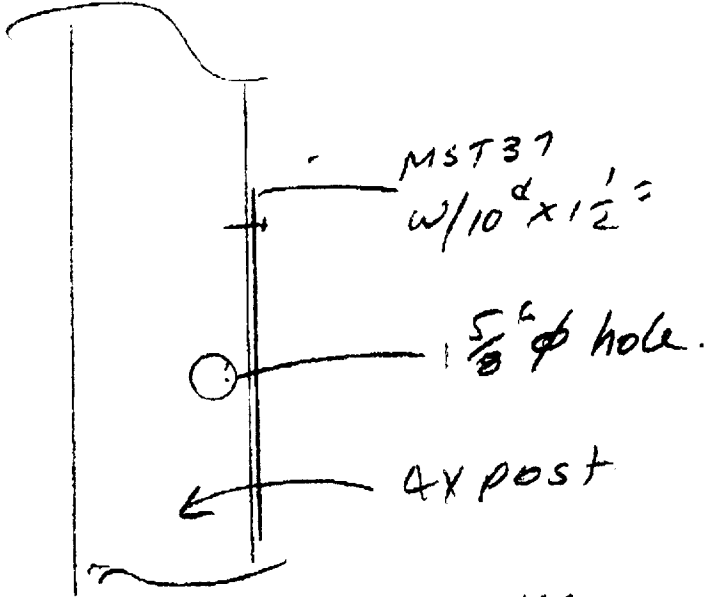 MST37
w/10ᵈ x 1 1/2"
1 5/8" ϕ hole.
4x post